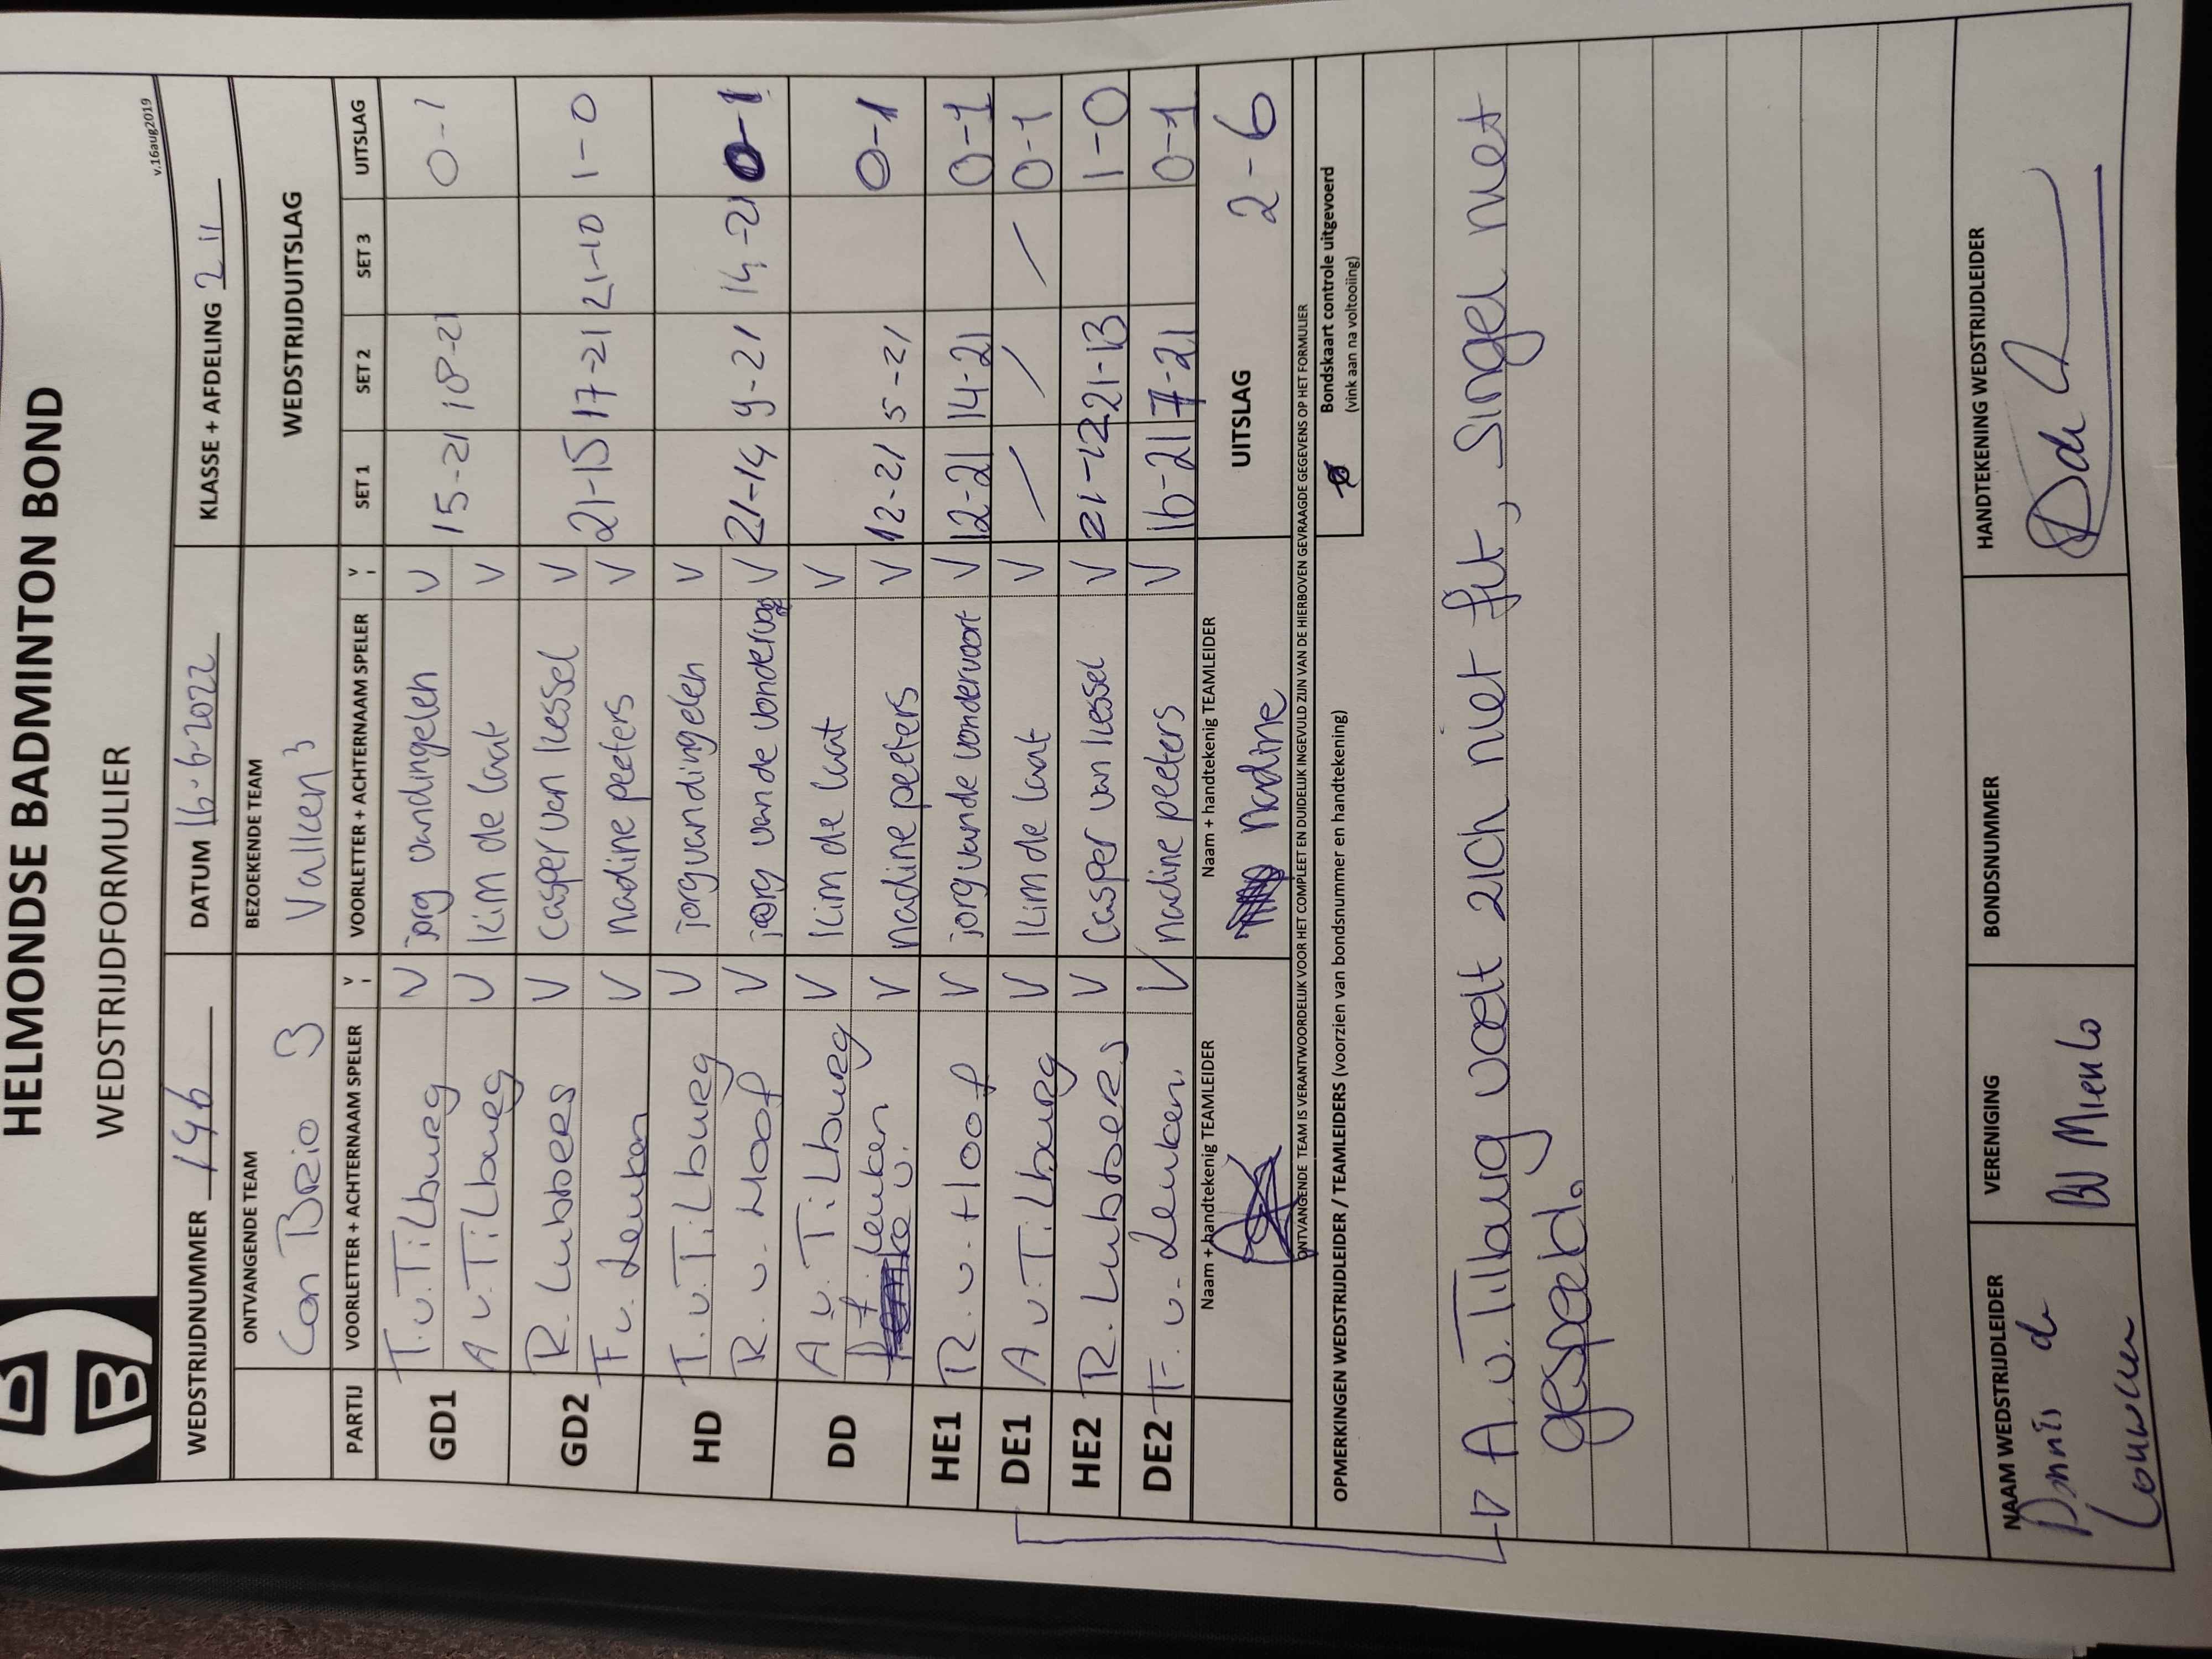 HELMONDSE BADMINTON BOND
WEDSTRIJDFORMULIER
v.16aug2019
WEDSTRIJDNUMMER 146 DATUM 16-6-2022 KLASSE + AFDELING 2 II
ONTVANGENDE TEAM BEZOEKENDE TEAM WEDSTRIJDUITSLAG
Con Brio 3 Valken 3
PARTIJ VOORLETTER + ACHTERNAAM SPELER V VOORLETTER + ACHTERNAAM SPELER V SET 1 SET 2 SET 3 UITSLAG
GD1 T.v.Tilburg V jorg vandingelen V 15-21 18-21 0-1
A v.Tilburg V kim de laat V
GD2 R. Lubbers V casper van kessel V 21-15 17-21 21-10 1-0
F v. Leuken V nadine peeters V
HD T.v.Tilburg V jorg vandingelen V
R v. Hoof V jorg van de vondervoo V 21-14 9-21 14-21 0-1
DD A v. Tilburg V kim de laat V
f. Leuken v. V nadine peeters V 12-21 5-21 0-1
HE1 R. v. Hoof V jorg vande vondervoort V 12-21 14-21 0-1
DE1 A v.Tilburg V kim de laat V / / / 0-1
HE2 R. Lubbers V Casper van kessel V 21-12 21-13 1-0
DE2 F. v. Leuken V nadine peeters V 16-21 7-21 0-1
Naam + handtekenig TEAMLEIDER Naam + handtekenig TEAMLEIDER UITSLAG 2-6
nadine
ONTVANGENDE TEAM IS VERANTWOORDELIJK VOOR HET COMPLEET EN DUIDELIJK INGEVULD ZIJN VAN DE HIERBOVEN GEVRAAGDE GEGEVENS OP HET FORMULIER
OPMERKINGEN WEDSTRIJDLEIDER / TEAMLEIDERS (voorzien van bondsnummer en handtekening) Bondskaart controle uitgevoerd
(vink aan na voltooiing)
A.v.Tilburg voelt zich niet fit, Singel niet
gespeeld.
NAAM WEDSTRIJDLEIDER VERENIGING BONDSNUMMER HANDTEKENING WEDSTRIJDLEIDER
Dennis de BV Mierlo
Louwen